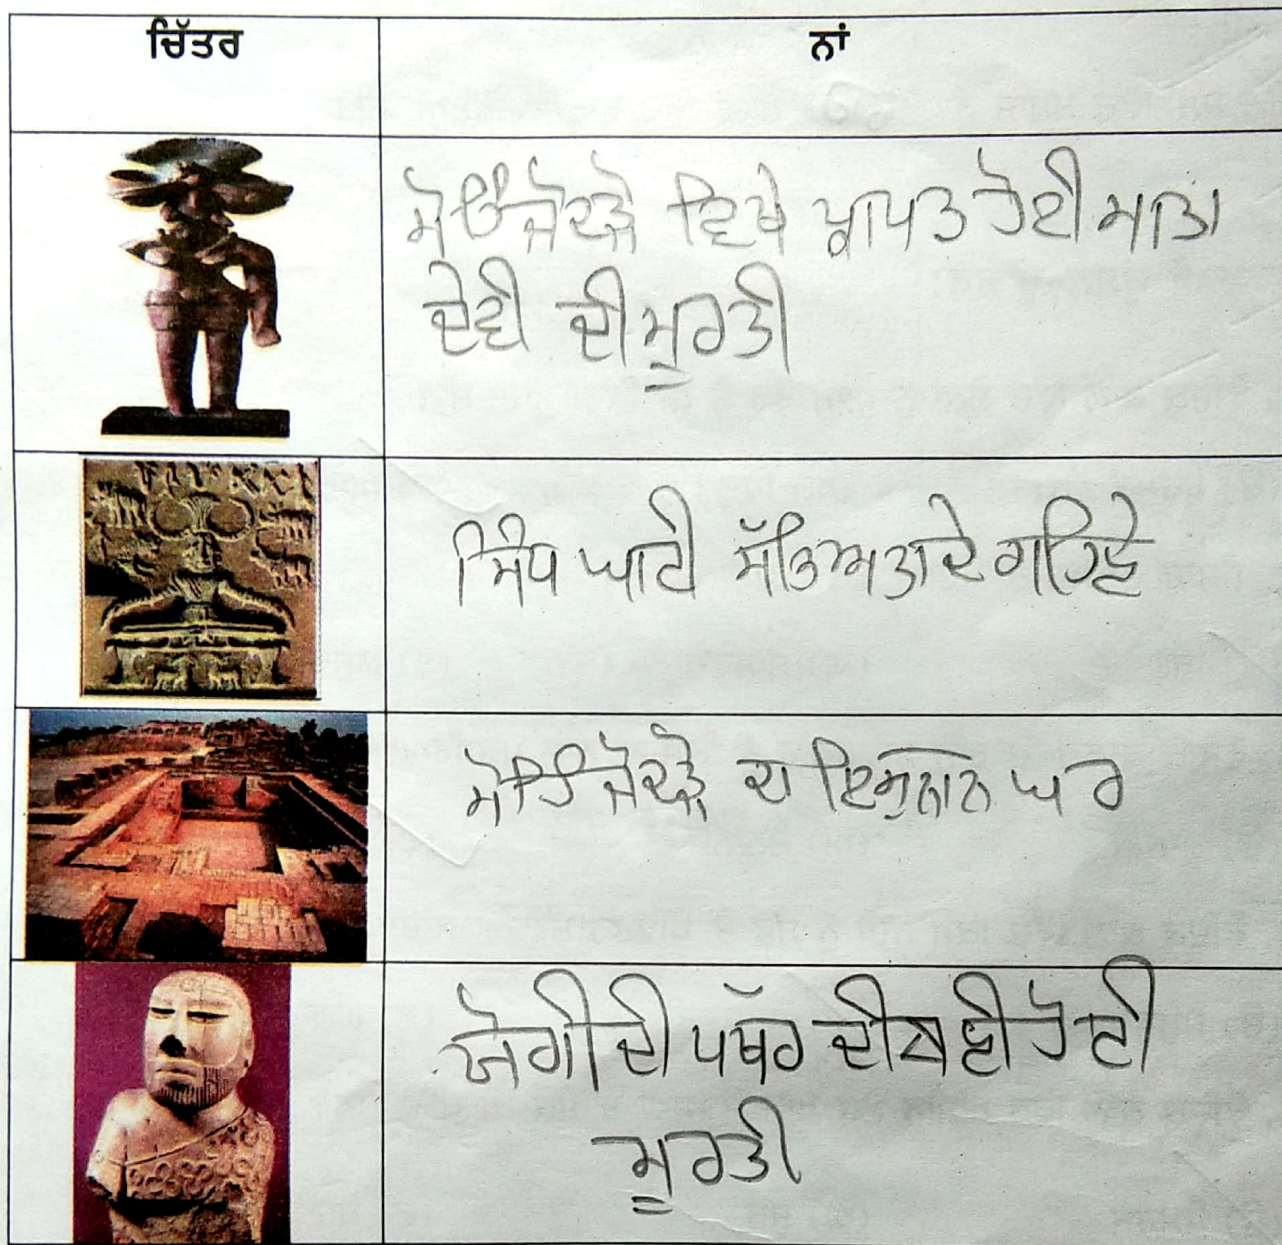 ਚਿੱਤਰ ਨਾਂ
ਮੋਹਿੰਜੋਦੜੋ ਵਿਖੇ ਪ੍ਰਾਪਤ ਹੋਈ ਮਾਤਾ
ਦੇਵੀ ਦੀ ਮੂਰਤੀ
ਸਿੰਧ ਘਾਟੀ ਸੱਭਿਅਤਾ ਦੇ ਗਹਿਣੇ
ਮੋਹਿੰਜੋਦੜੋ ਦਾ ਇਸ਼ਨਾਨ ਘਰ
ਯੋਗੀ ਦੀ ਪਥੱਰ ਦੀ ਬਣੀ ਹੋਈ
ਮੂਰਤੀ